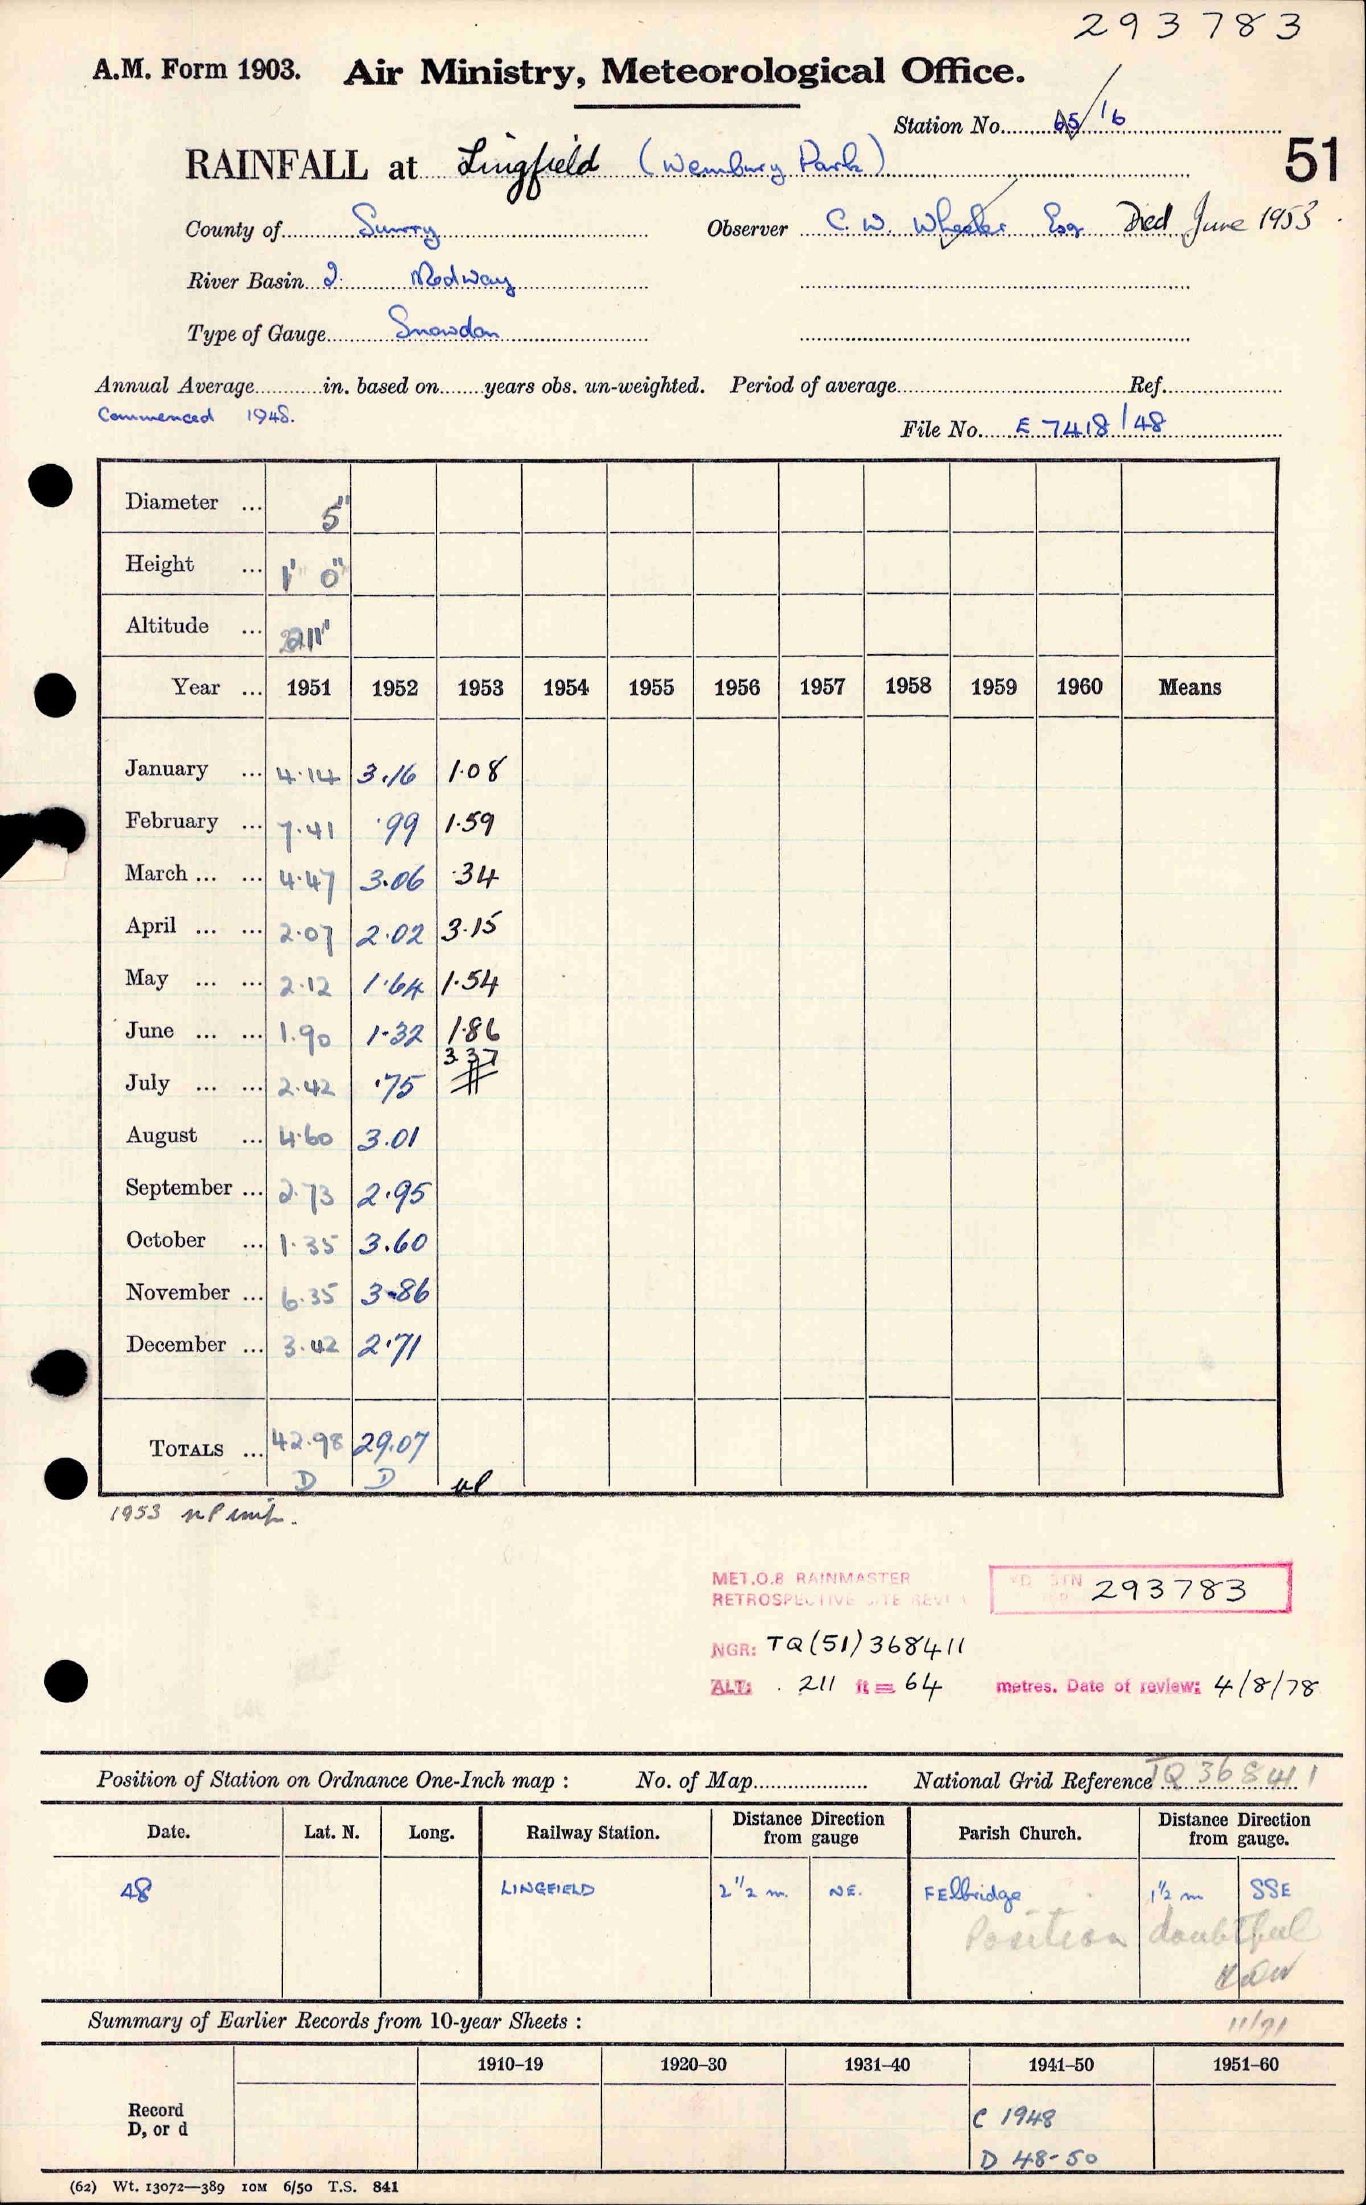 293783
A.M. Form 1903. Air Ministry, Meteorological Office.
Station No. 65/16
RAINFALL at Lingfield (Wembury Park)
51
County of Surrey Observer C. W. Wheeler Esq Died June 1953.
River Basin 2. Medway
Type of Gauge Snowdon
Annual Average in. based on years obs. un-weighted. Period of average Ref.
Commenced 1948.
File No. E 7418/48
Diameter ... 5"
Height ... 1' 0"
Altitude ... 211'
Year ... 1951 1952 1953 1954 1955 1956 1957 1958 1959 1960 Means
January ... 4.14 3.16 1.08
February ... 7.41 .99 1.59
March ... ... 4.47 3.06 .34
April ... ... 2.07 2.02 3.15
May ... ... 2.12 1.64 1.54
June ... ... 1.90 1.32 1.86
3.37
July ... ... 2.42 .75
August ... 4.60 3.01
September ... 2.73 2.95
October ... 1.35 3.60
November ... 6.35 3.86
December ... 3.42 2.71
TOTALS ... 42.98 29.07
D D
1953
MET.O.8 RAINMASTER
RETROSPECTIVE SITE REVIEW
STN 293783
NGR: TQ(51)368411
ALT: 211 ft = 64 metres. Date of review: 4/8/78
Position of Station on Ordnance One-Inch map : No. of Map National Grid Reference TQ 368411
Date. Lat. N. Long. Railway Station. Distance Direction from gauge Parish Church. Distance Direction from gauge.
48 LINGFIELD 2 1/2 m. NE. FElbridge 1 1/2 m SSE
Position doubtful
11/71
Summary of Earlier Records from 10-year Sheets :
1910–19 1920–30 1931–40 1941–50 1951–60
Record
D, or d
C 1948
D 48-50
(62) Wt. 13072—389 10M 6/50 T.S. 841